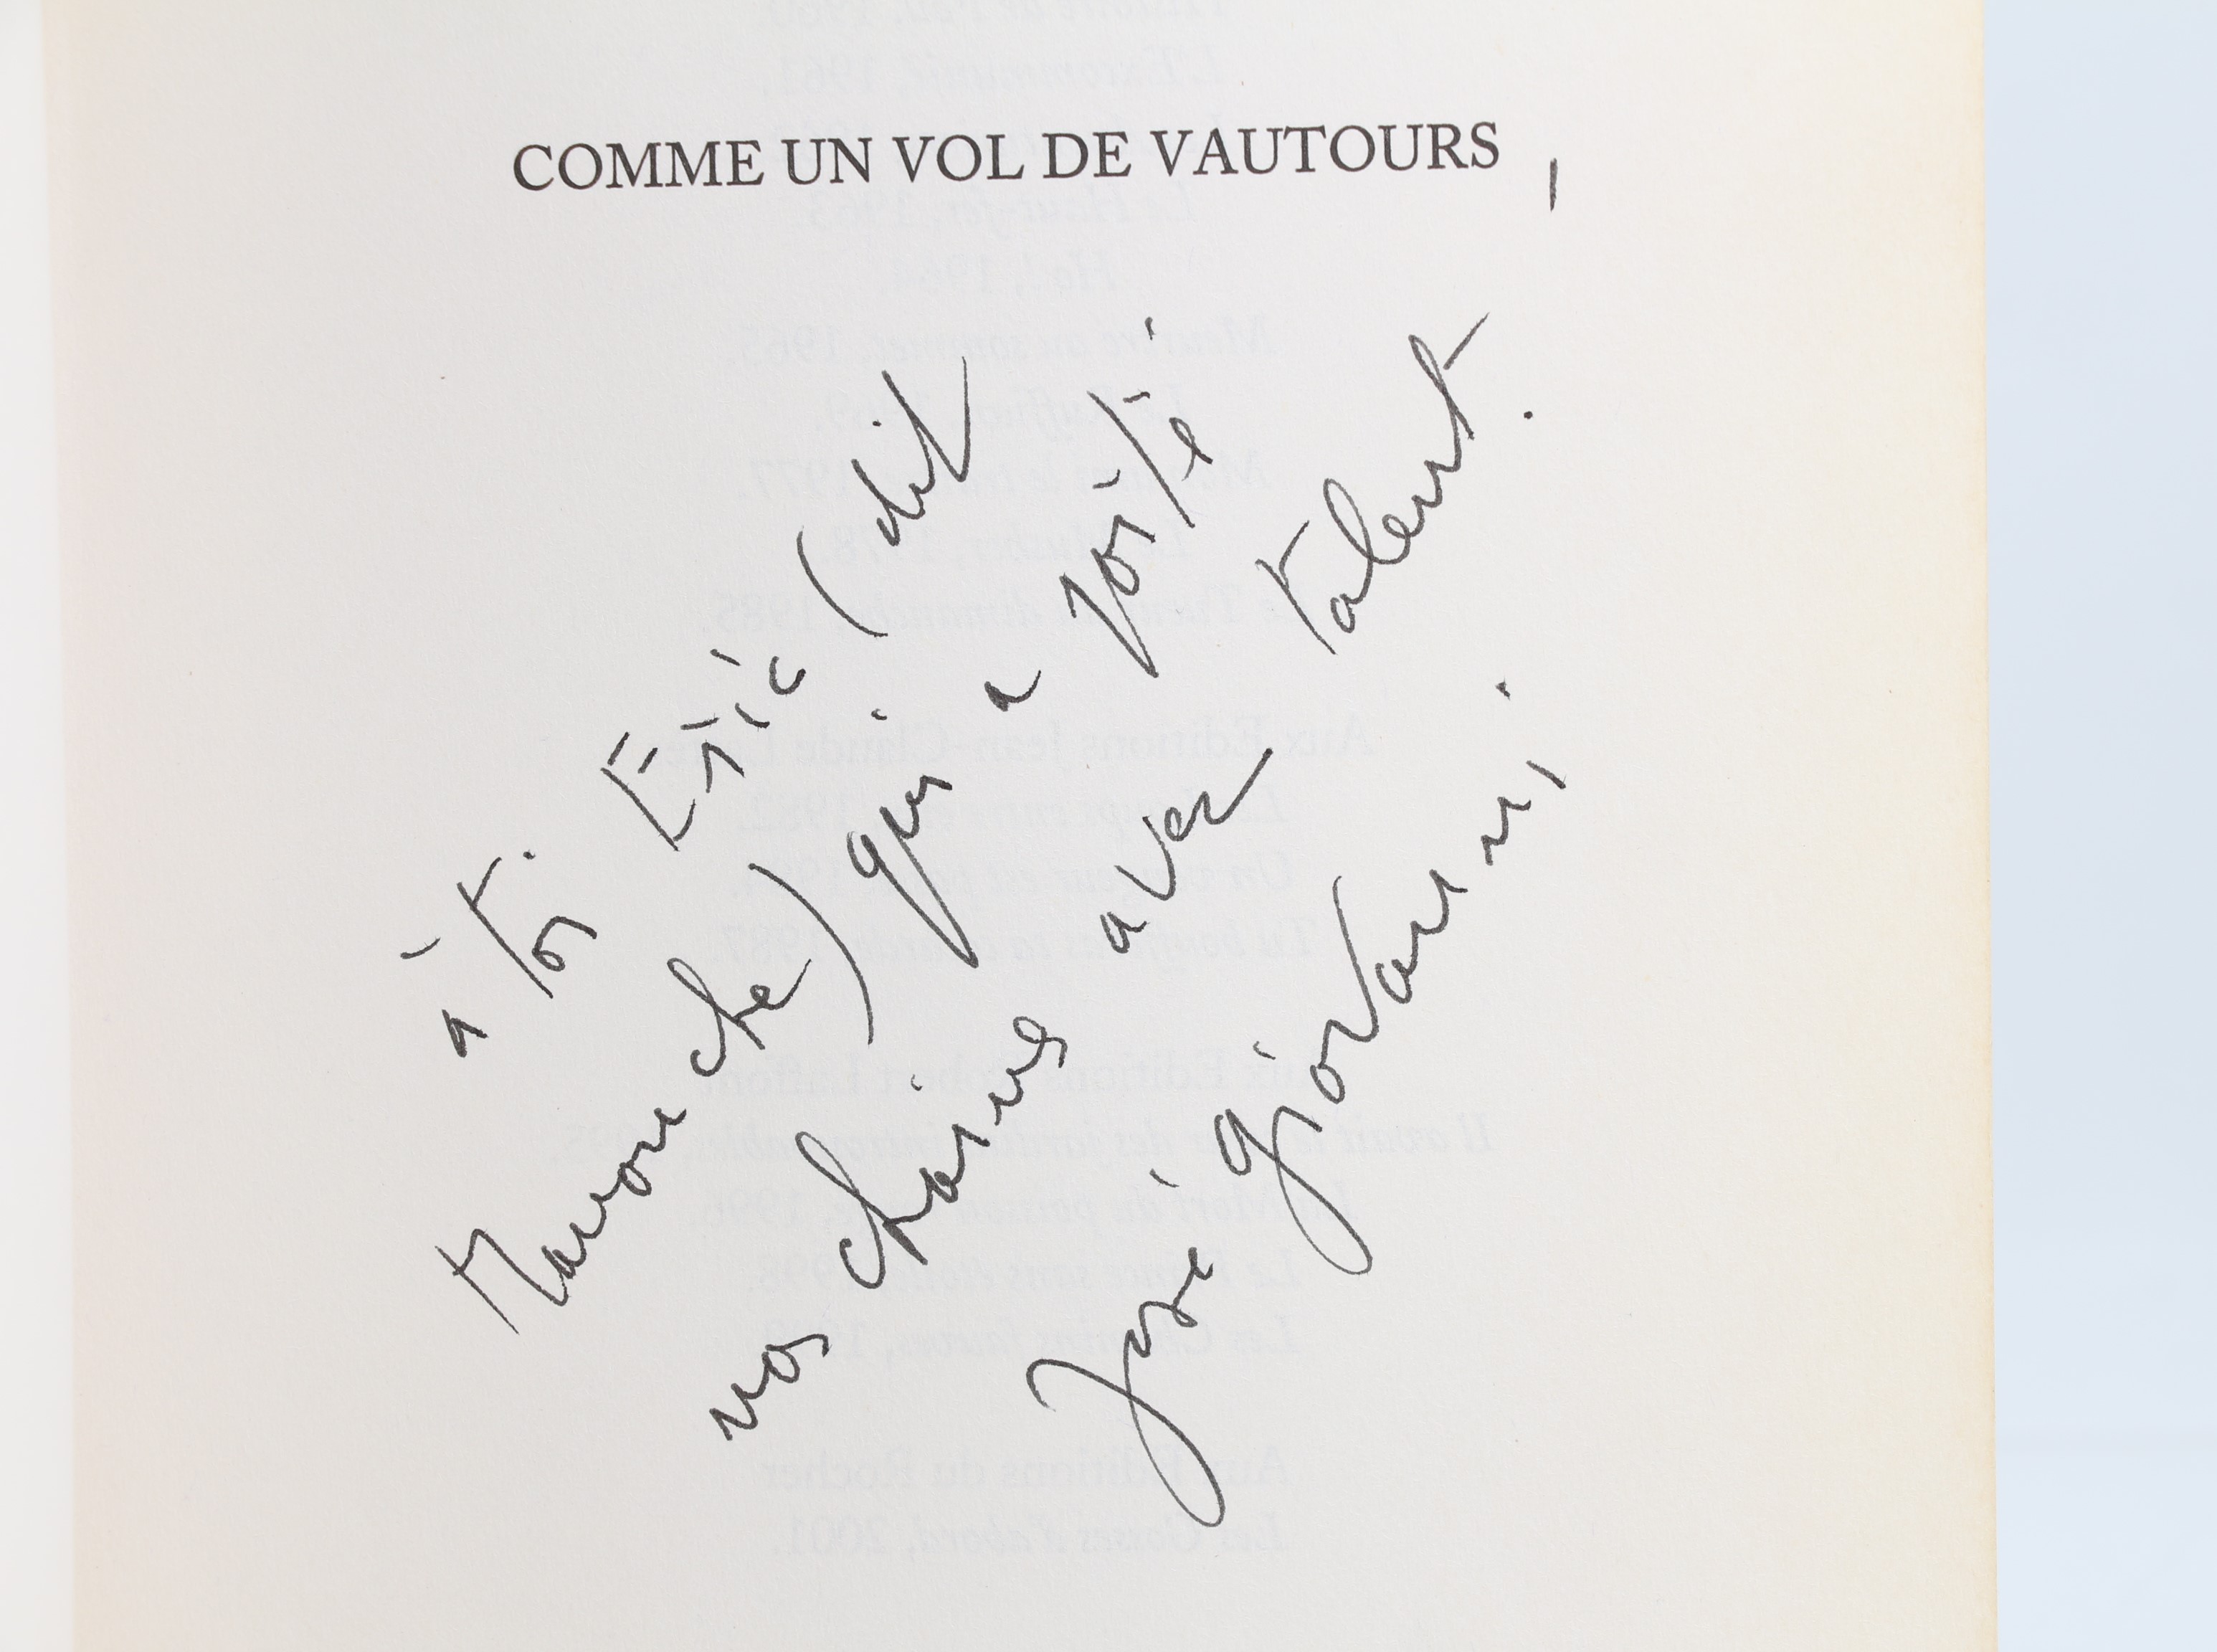 COMME UN VOL DE VAUTOURS
à toi Eric (dit
Manouche) qui a porté
nos chaines avec talent.
José Giovanni.